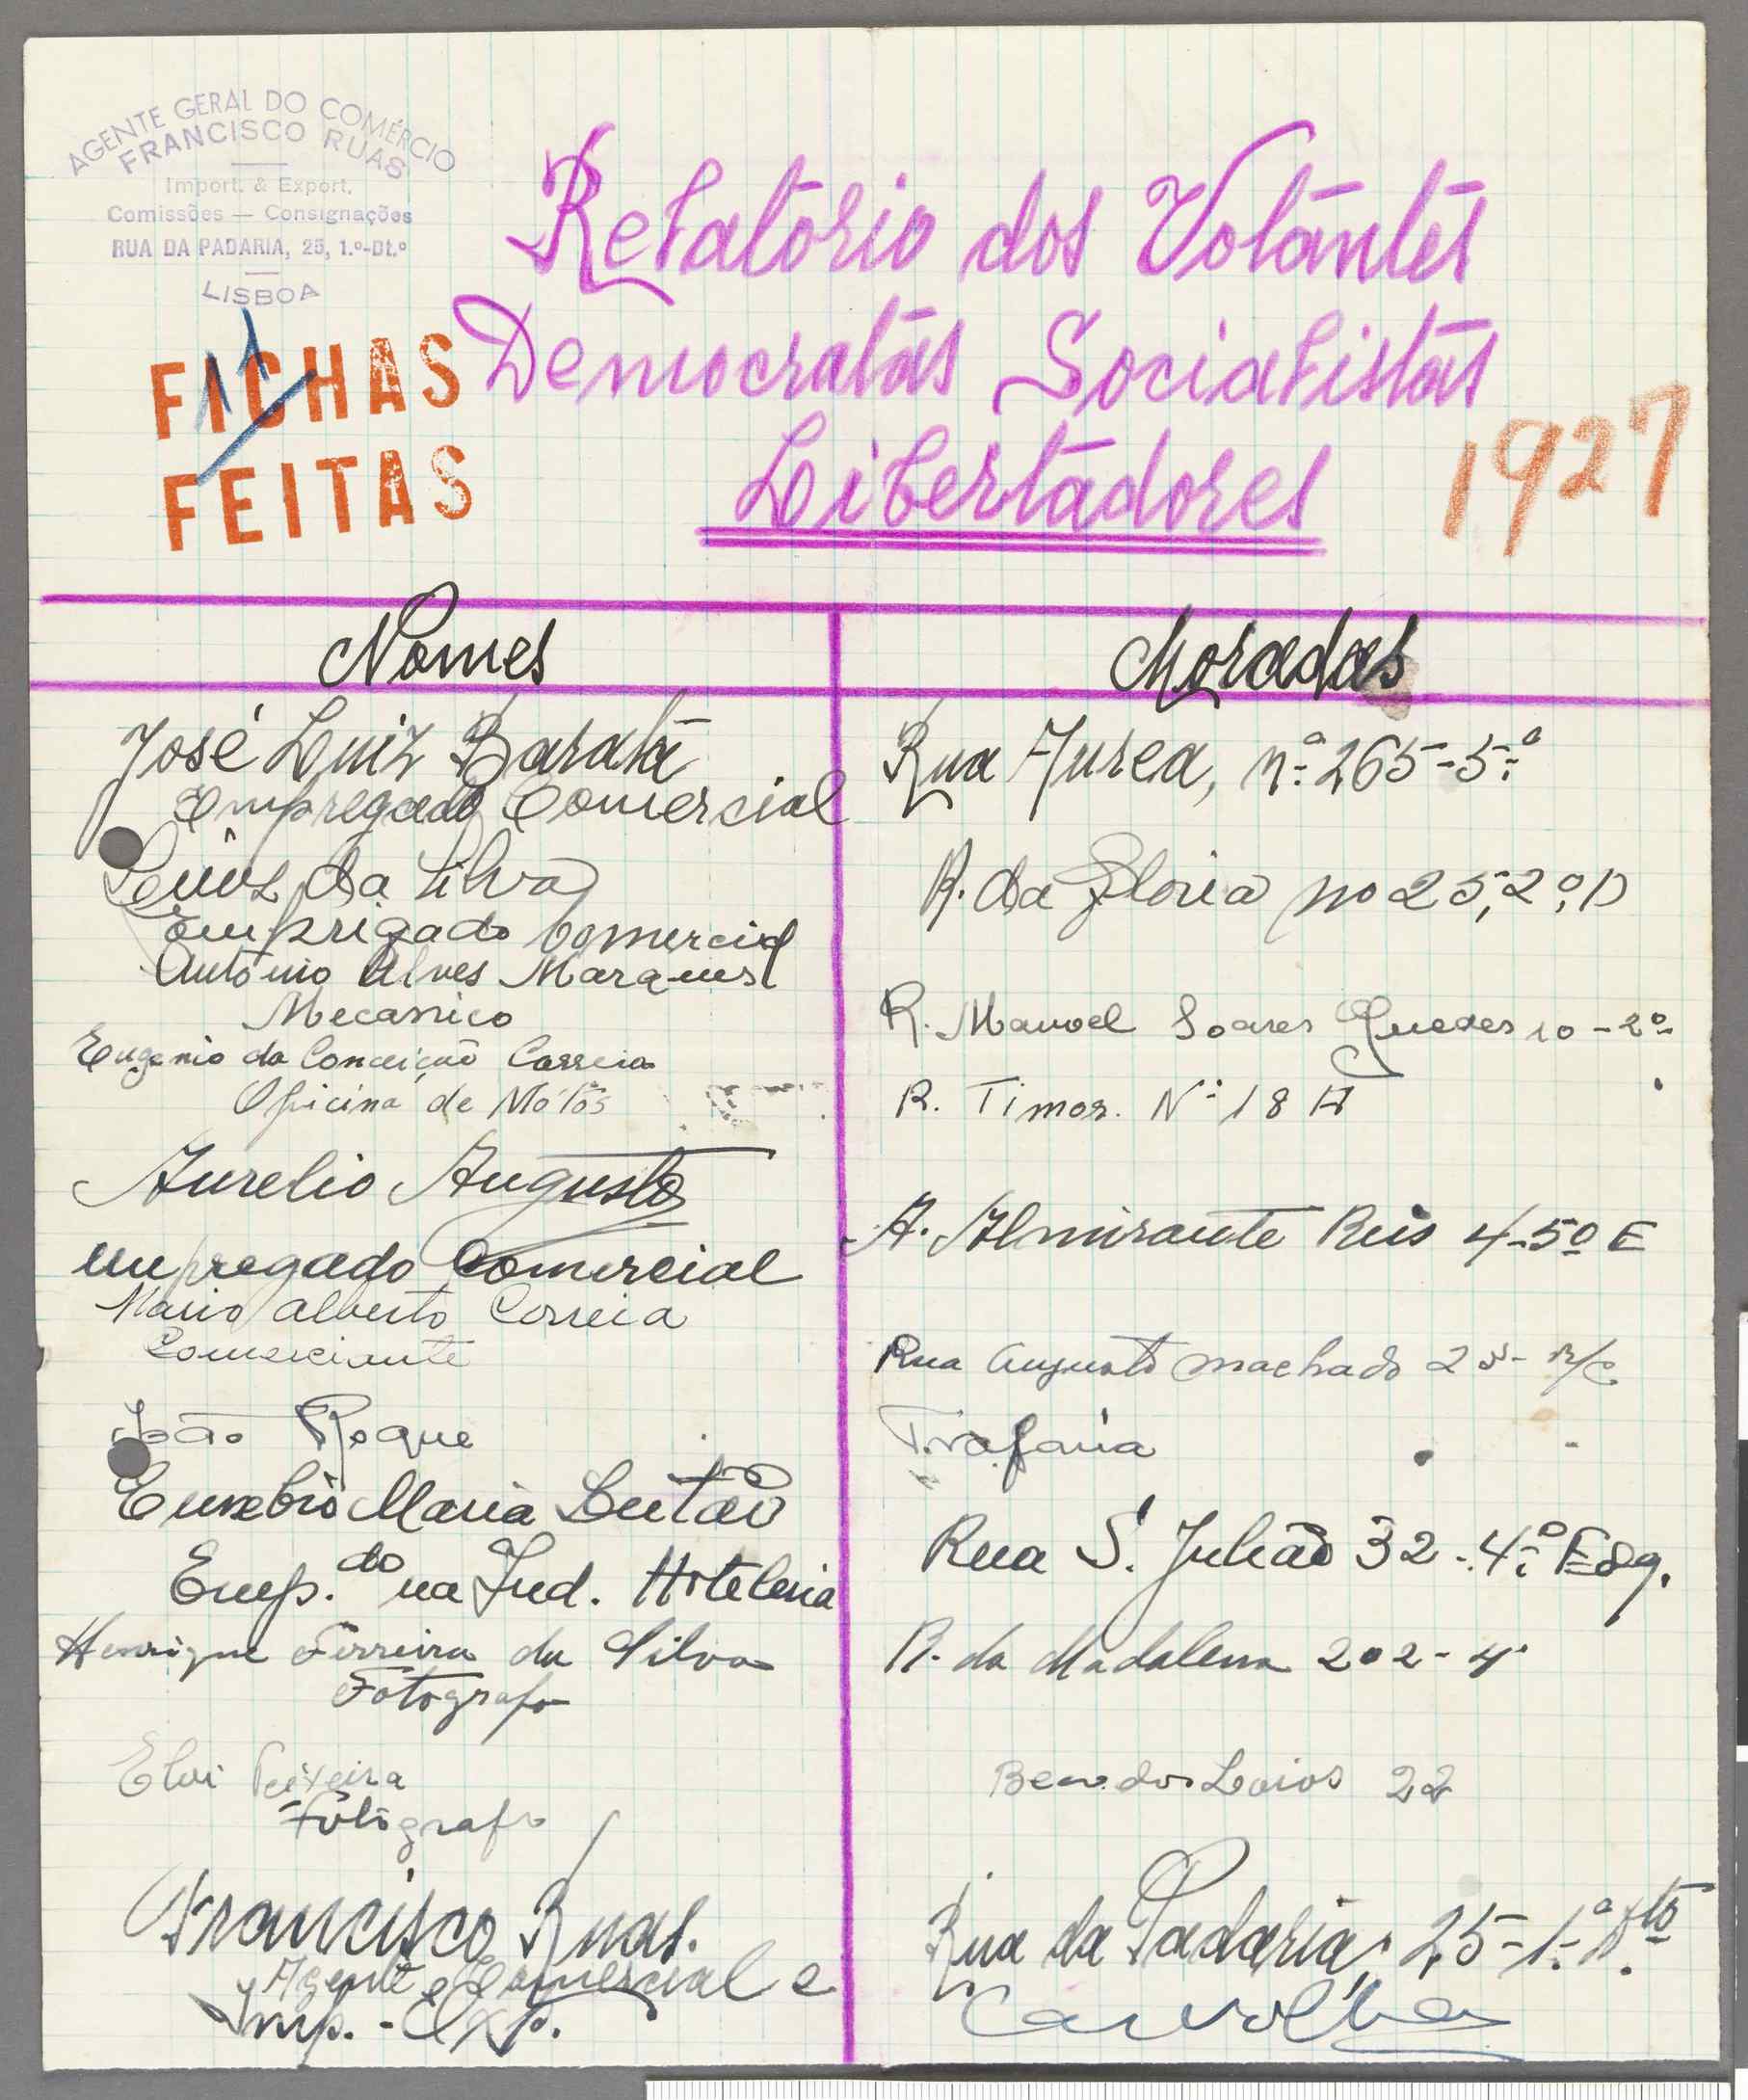 AGENTE GERAL DO COMÉRCIO
FRANCISCO RUAS
Import. & Export.
Comissões — Consignações
RUA DA PADARIA, 25, 1.º-Dt.º
LISBOA
Relatório dos Votantes
Democratas Socialistas
Libertadores
1927
FICHAS
FEITAS
Nomes Moradas
José Luiz Barata Rua Aurea, nº 265-5º
Empregado Comercial
da Silva R. da Gloria no 25, 2º, D
Emprigado Comercial
António Alves Marques
Mecanico R. Manoel Soares Guedes 10-2º
Eugenio da Conceição Correia
Oficina de Mótos R. Timor. Nº 18 A
Aurelio Augusto A. Almirante Reis 4-5º E
empregado Comercial
Mario Alberto Correia
Comerciante Rua Augusto Machado R/C
João Roque Trafaria
Eusebio Maria Leitão Rua S. Julião 32-4º Esq.
Emp.do na Ind. Hoteleria
Henrique Ferreira da Silva R. da Madalena 202-4º
Fotografo
Eloi Teixeira Beco dos Loios 22
Fotografo
Francisco Ruas. Rua da Padaria, 25-1º Dto.
Agente Comercial e
Imp.-Exp. Carvalho